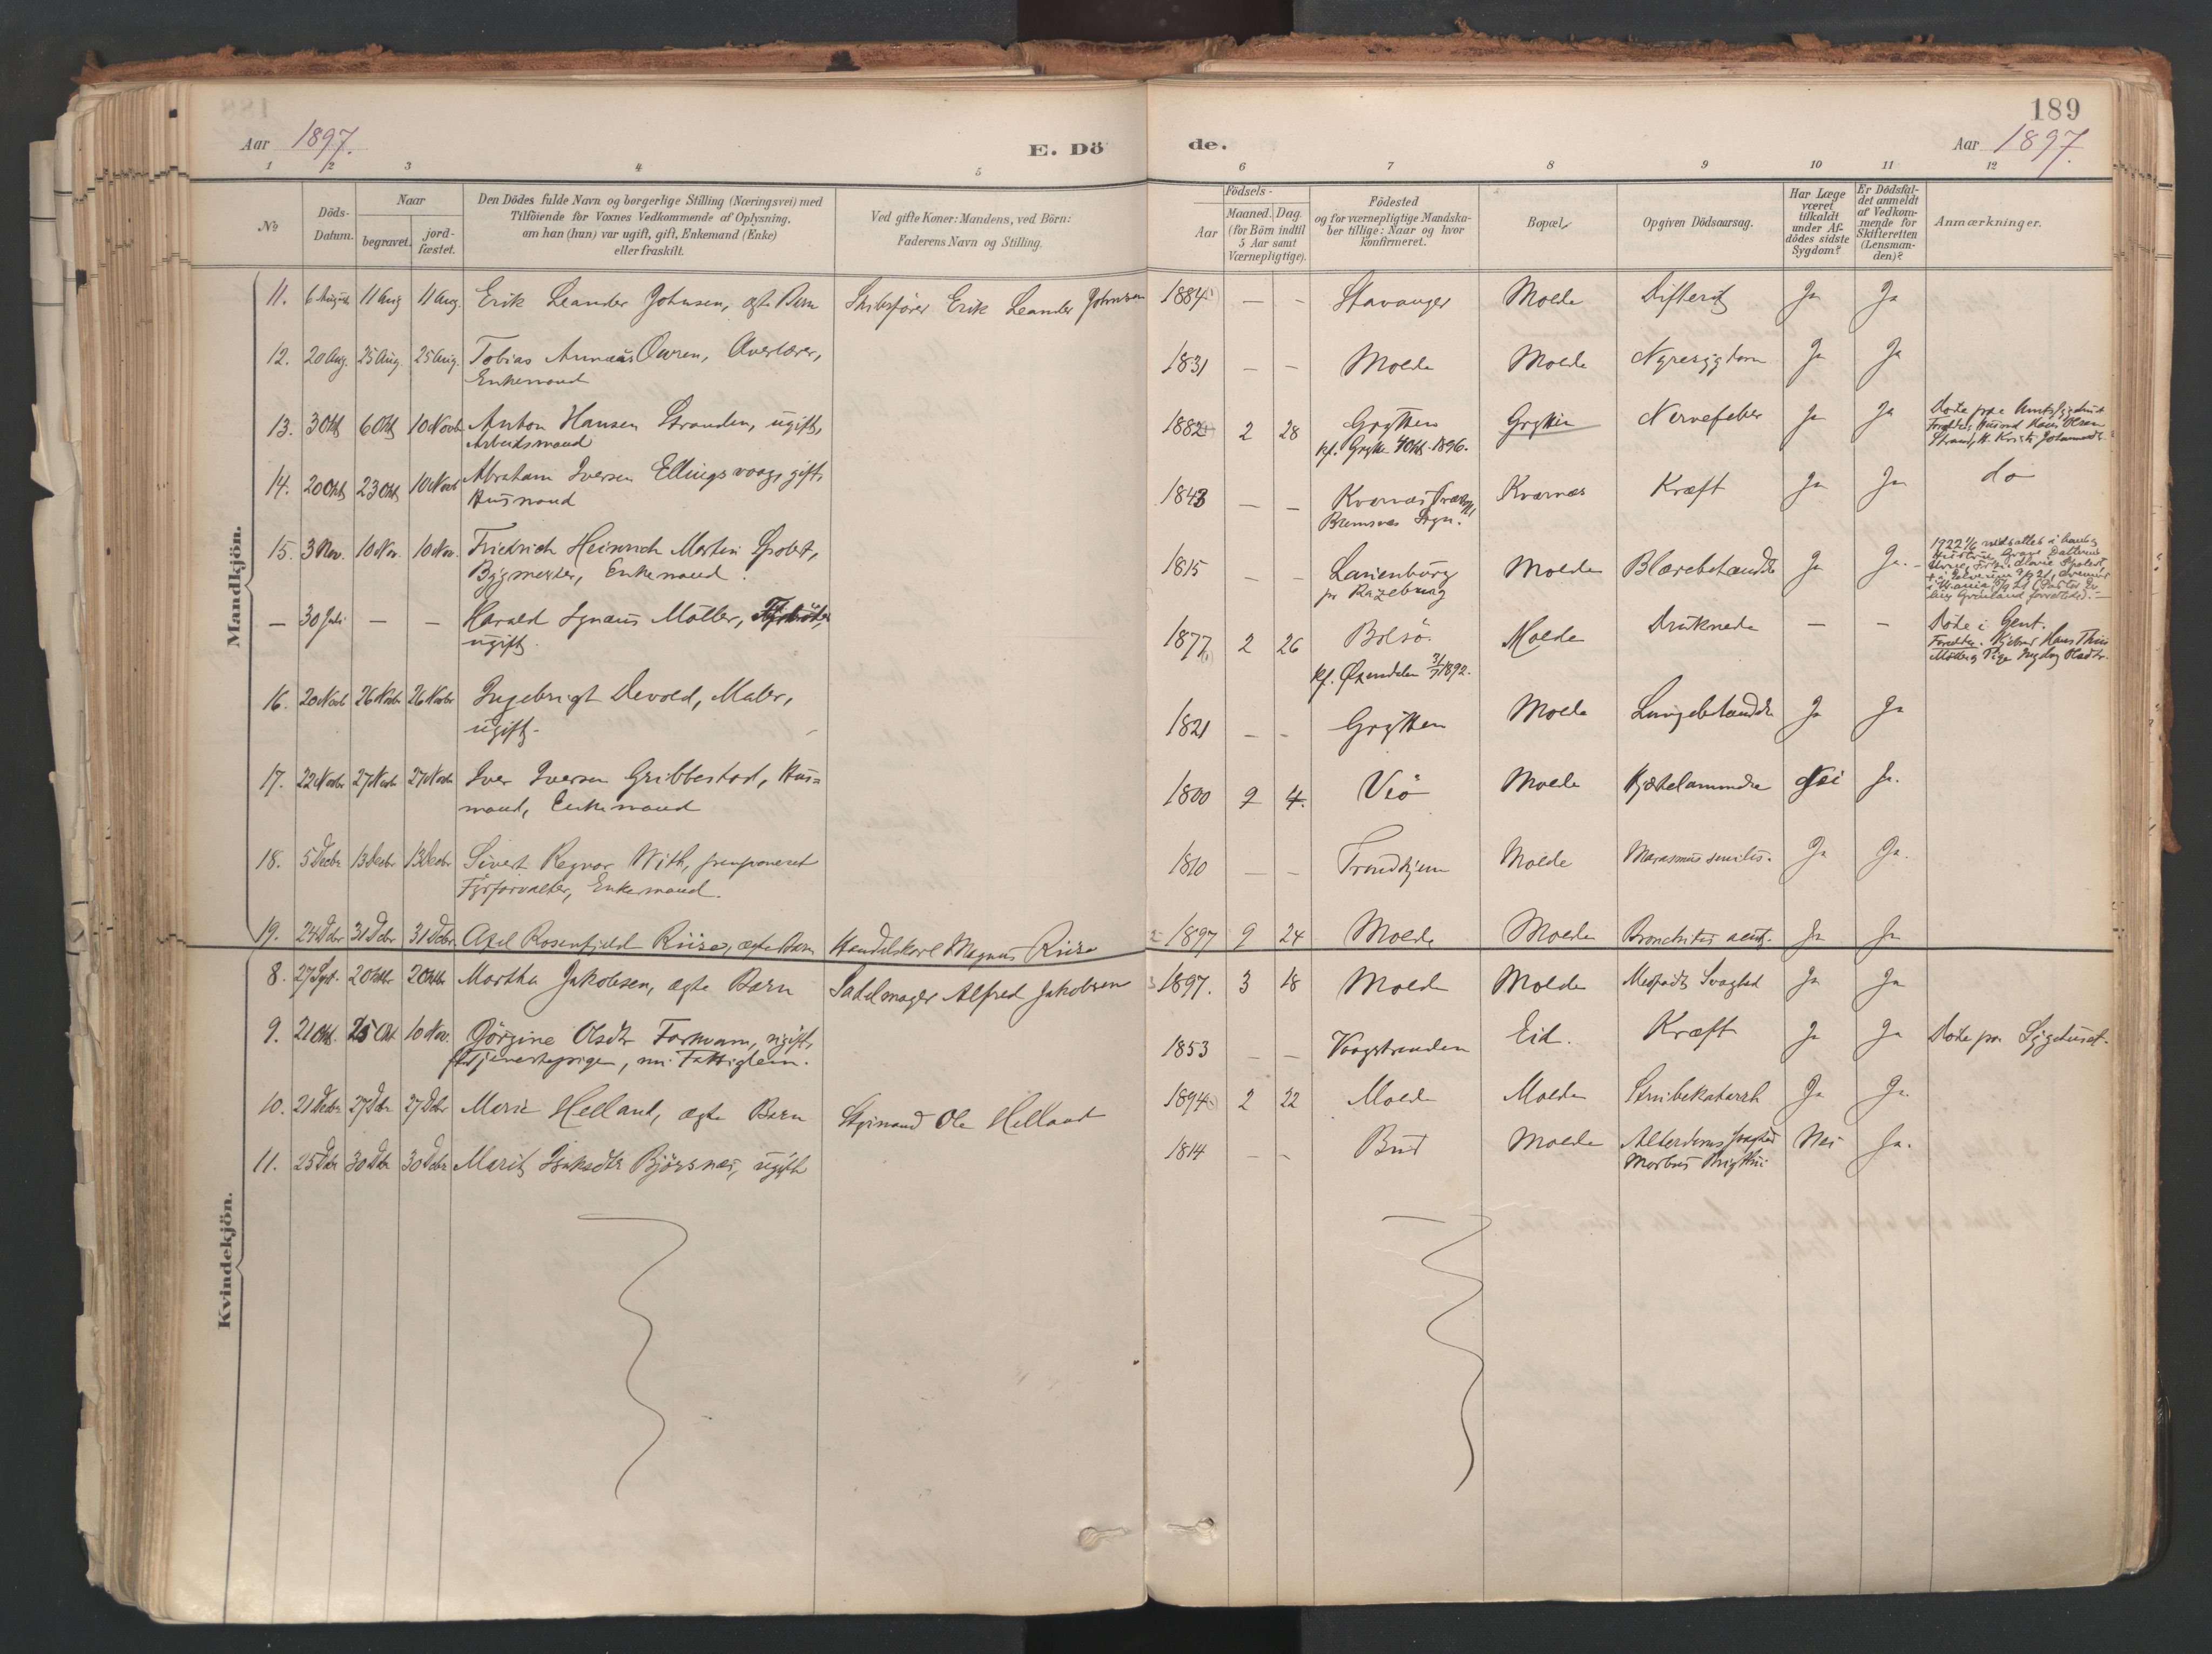 189
Aar 1897.
E. Dö
de.
Aar 1897.
1 2 3 4 5 6 7 8 9 10 11 12
№
Döds-
Datum.
Naar
begravet.
jord-
fæstet.
Den Dödes fulde Navn og borgerlige Stilling (Næringsvei) med
Tilföiende for Voxnes Vedkommende af Oplysning.
om han (hun) var ugift, gift, Enkemand (Enke)
eller fraskilt.
Ved gifte Koner: Mandens, ved Börn:
Faderens Navn og Stilling.
Födsels-
Aar
Maaned. Dag.
(for Börn indtil
5 Aar samt
Værnepligtige).
Födested
og for værnepligtige Mandska-
ber tillige: Naar og hvor
konfirmeret.
Bopæl.
Opgiven Dödsaarsag.
Har Læge
været
tilkaldt
under Af-
dödes sidste
Sygdom?
Er Dödsfal-
det anmeldt
af Vedkom-
mende for
Skifteretten
(Lensman-
den)?
Anmærkninger.
Mandkjön.
11. 6 August 11 Aug 11 Aug. Erik Leander Johnsen, ægte Barn Skibsfører Erik Leander Johnsen 1884 — - Stavanger Molde Difterit Ja Ja
12. 20 Aug. 25 Aug. 25 Aug. Tobias Annæus Owren, Overlærer,
Enkemand
1831 — — Molde Molde Nyresygdom Ja Ja
13. 3 Okt 6 Okt 10 Novb Anton Hansen Stranden, ugift,
Arbeidsmand
1882 2 28 Grytten
kf. Grytten 4 Okt. 1896.
Grytten Nervefeber Ja Ja Døde paa Amtssygehuset
Forældre: Husmd Hans Olsen
14. 20 Okt 23 Okt 10 Novb Abraham Iversen Ellingsvaag, gift,
Husmand
1843 — — Kvernæs Præstegj,
Bremsnes Sogn.
Kvernæs Kræft Ja Ja do
15. 3 Nov. 10 Nov. 10 Nov. Friedrich Heinrich Martin Spolert,
Bygmester, Enkemand.
1815 — — Lauenburg
pr Razeburg
Molde Blærebetændelse Ja Ja.
1922
— 30 Juli — — Harald Ignæus Møller,
ugift.
1877 2 26 Bolsø.
kf. Øxendalen 31/7 1892.
Molde Druknede — — Døde i Gent.
16. 20 Novb 26 Novbr 26 Novbr Ingebrigt Devold, Maler,
ugift.
1821 — - Grytten Molde Lungebetændelse Ja Ja
17. 22 Novbr 27 Novbr 27 Novbr Iver Iversen Gribbestad, Hus=
mand, Enkemand
1800 9 4. Veø Molde Nei Ja.
18. 5 Decbr 13 Decbr 13 Decbr Sivert Regnor With,
Fyrforvalter, Enkemand.
1810 — — Trondhjem Molde Marasmus senilis. Ja Ja.
19. 24 Dcbr 31 Dcbr 31 Dcbr. Axel Rosenfjeld Riise, ægte Barn Handelskarl Magnus Riise 1897 9 24 Molde Molde Bronchitis acut. Ja Ja
Kvindekjön.
8. 27 Sept. 2 Oktbr 2 Oktbr Martha Jakobsen, ægte Barn Sadelmager Alfred Jakobsen 1897. 3 18 Molde Molde Medfødt Svaghed Ja Ja
9. 21 Okt. 25 Okt 10 Nov. Gjørgine Olsdtr Torhvam, ugift,
Tjenestepige, nu Fattiglem.
1853 — — Vaagstranden Eid. Kræft Ja Ja Døde paa Sygehuset.
10. 21 Decbr 27 Dcbr. 27 Dcbr Marie Helland, ægte Barn Ole Helland 1894 2 22 Molde Molde Strubekatarrh Ja Ja.
11. 25 Dcbr 30 Dcbr 30 Dcbr Marit Bjørsnes, ugift 1814 — - Bud Molde Alderdoms svaghed
Morbus Brightii
Nei Ja.